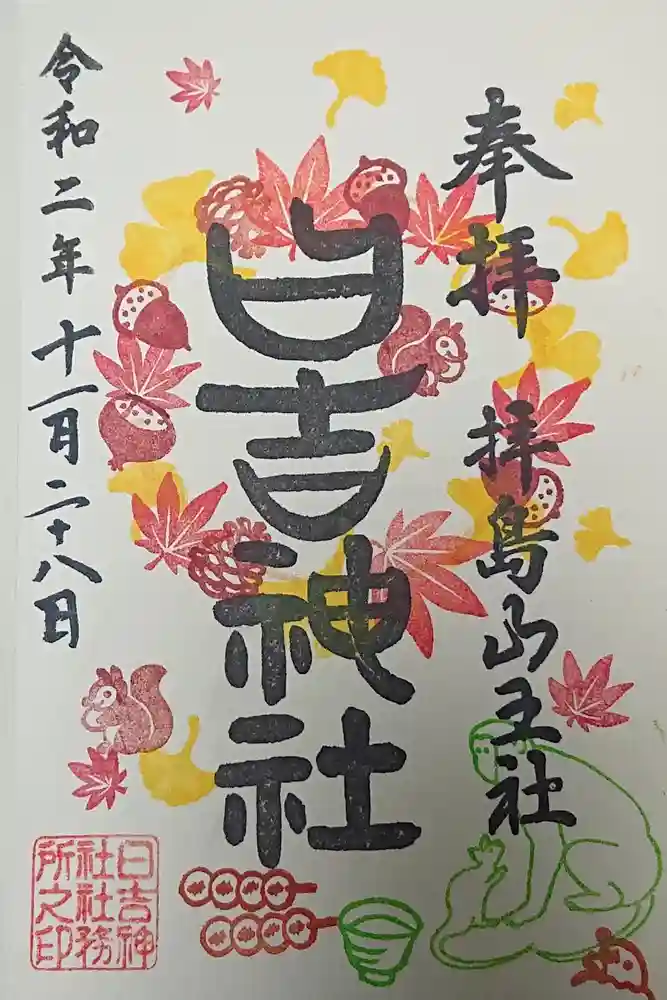 奉拝 拝島山王社
日吉神社
令和二年十一月二十八日
日吉神
社社務
所之印